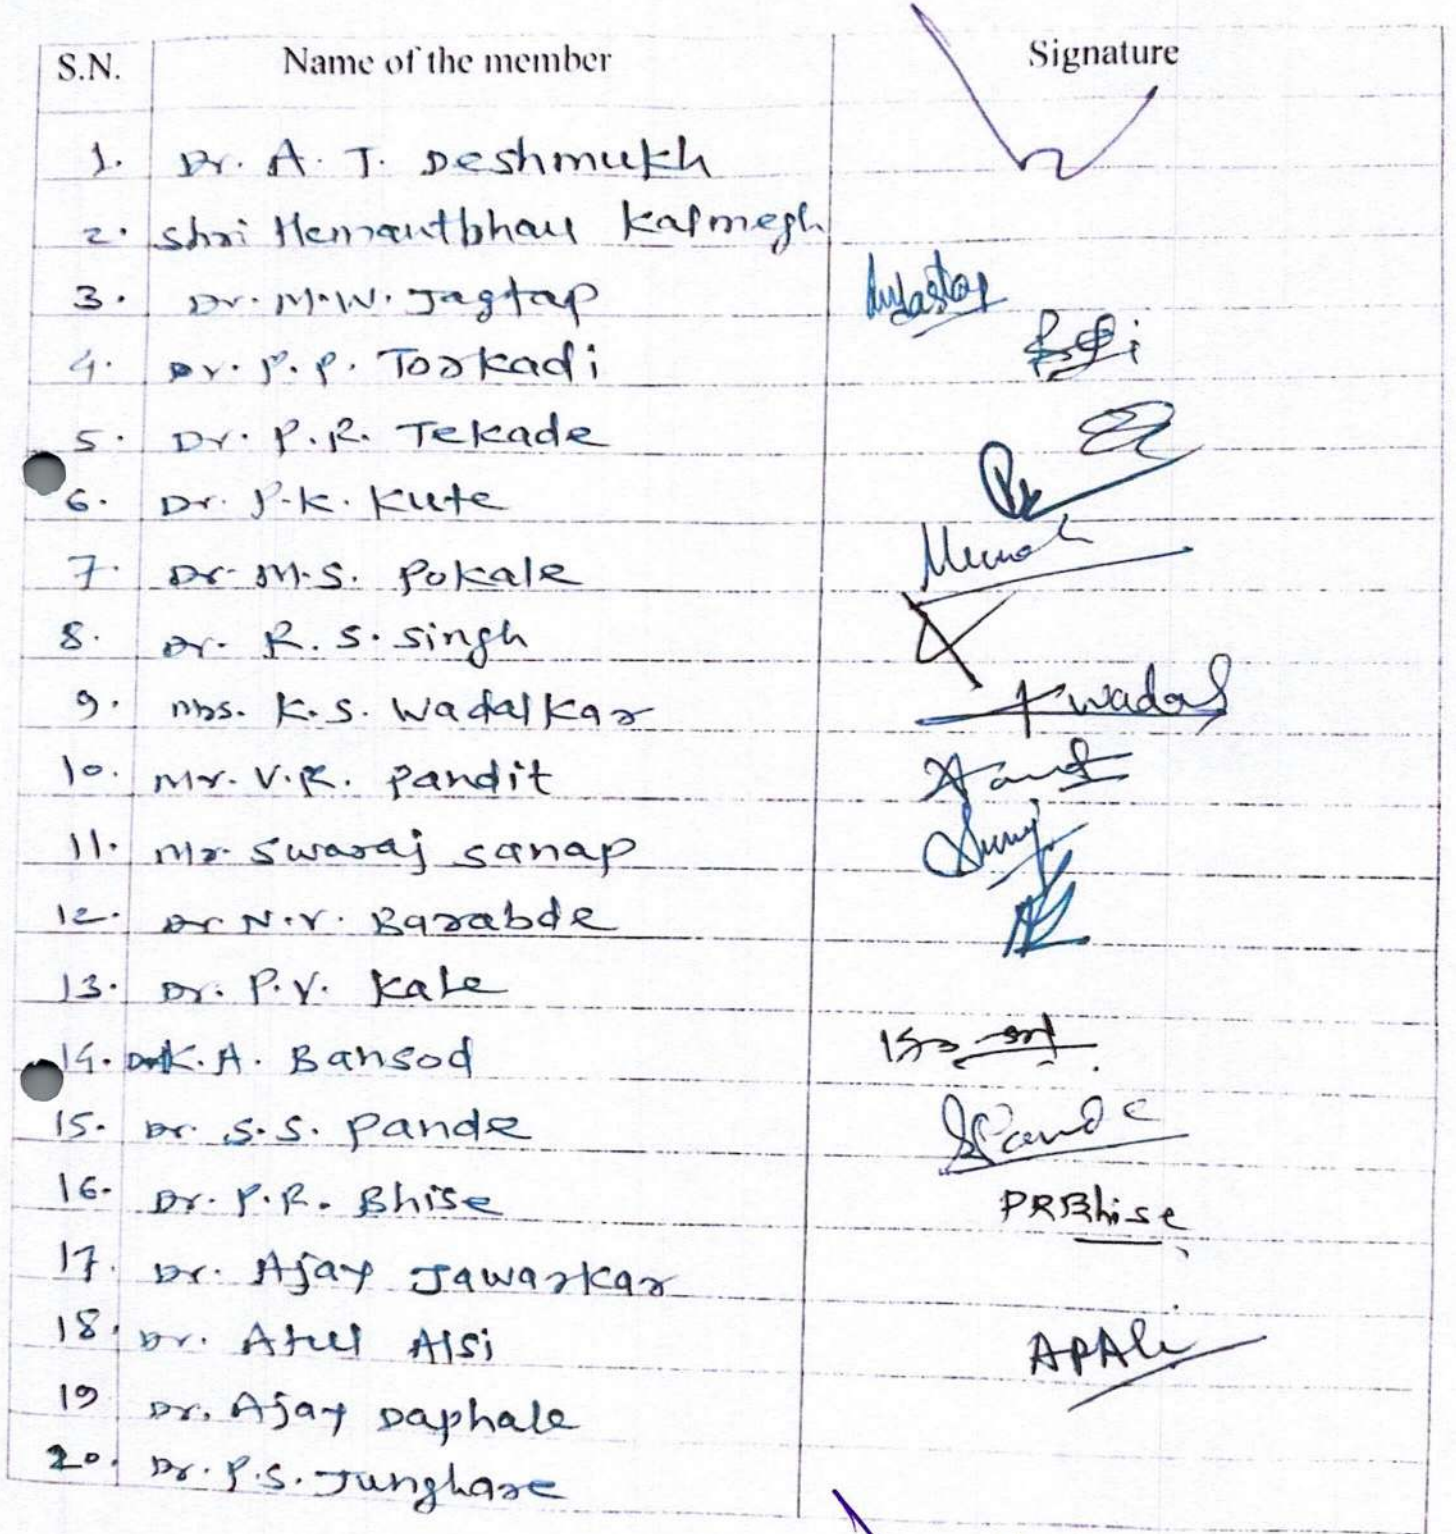 S.N. Name of the member Signature
1. Dr. A. T. Deshmukh
2. Shri Hemantbhau Kalmegh
3. Dr. M.W. Jagtap
4. Dr. P. P. Torkadi
5. Dr. P.R. Tekade
6. Dr. P.K. Kute
7. Dr. M.S. Pokale
8. Dr. R. S. Singh
9. Mrs. K.S. Wadalkar Kwadal
10. Mr. V.R. Pandit
11. Mr. Swaraj Sanap
12. Dr N.V. Barabde
13. Dr. P.V. Kale
14. Dr K.A. Bansod
15. Dr. S.S. Pande SPande
16. Dr. P.R. Bhise PRBhise
17. Dr. Ajay Jawarkar
18. Dr. Atul Alsi APAlsi
19 Dr. Ajay Daphale
20. Dr. P.S. Junghare